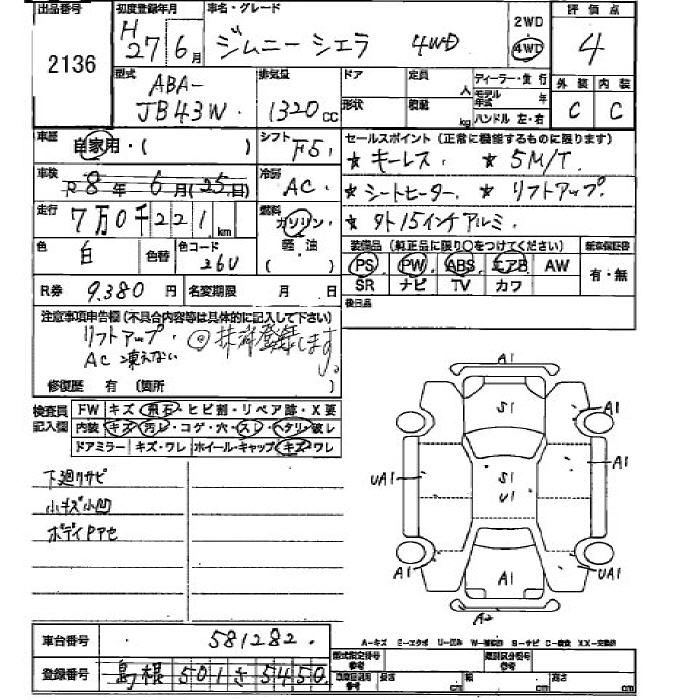 出品番号 初度登録年月 車名・グレード 2WD 評価点
2136 H27年6月 ジムニーシエラ 4WD 4WD 4
型式 排気量 ドア 定員 人 ディーラー・並行 外装 内装
ABA-
JB43W 1320cc 形状 積載 kg モデル年式 年 ハンドル 左・右 C C
車歴 自家用・( ) シフト F5 セールスポイント(正常に機能するものに限ります)
★キーレス. ★5M/T.
車検 R8年6月(25日) 冷房 AC. ★シートヒーター. ★リフトアップ.
走行 7万0千221km 燃料 ガソリン・ ★タト15インチアルミ.
軽・油
( )
色 白 色替 色コード 26U 装備品(純正品に限り○をつけてください) 新車保証書
PS PW ABS エアB AW 有・無
SR ナビ TV カワ
R券 9,380円 名変期限 月 日 後日品
注意事項申告欄(不具合内容等は具体的に記入して下さい)
リフトアップ. ◎抹消登録します。
AC 凍えない
修復歴 有 (箇所
検査員記入欄 FW キズ・飛石・ヒビ割・リペア跡・X要
内装 キズ・汚レ・コゲ・穴・スレ・ヘタリ・破レ
ドアミラー キズ・ワレ ホイール・キャップ キズ・ワレ
下廻りサビ
小キズ小凹
ボディPアセ
A1
S1 A1
UA1 S1 A1
U1
A1 A1 UA1
A2
車台番号 581282.
登録番号 島根 501 さ 5450
型式指定番号 参考 類別区分番号 参考
参考 長さ cm 幅 cm 高さ cm